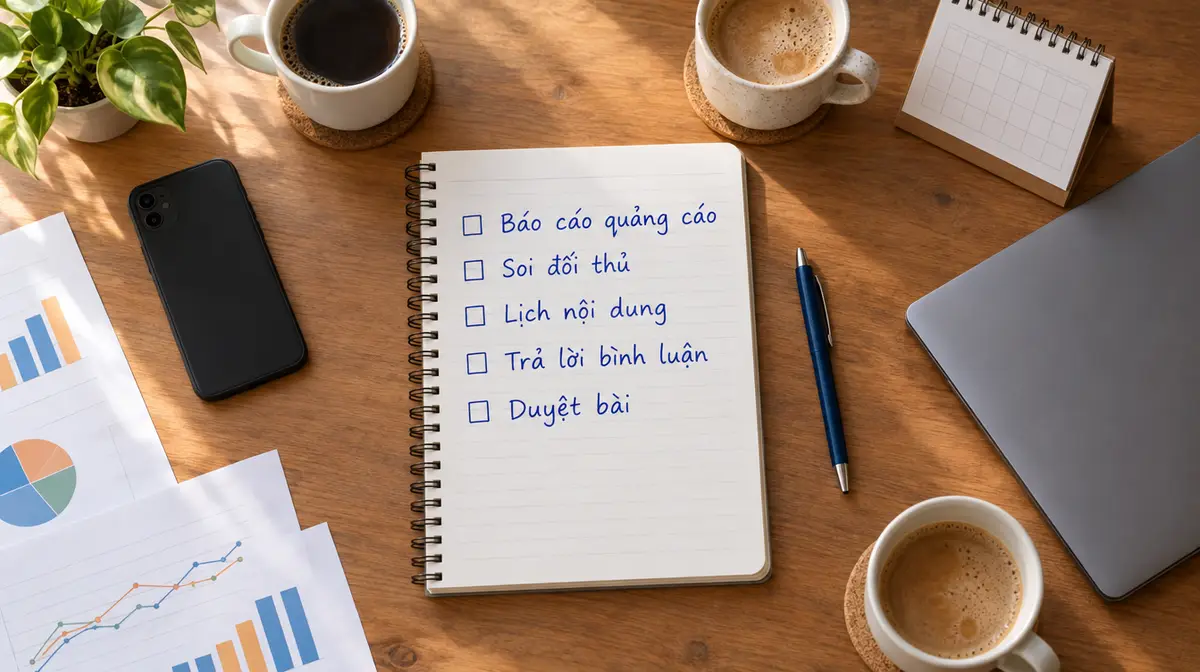 Báo cáo quảng cáo
Soi đối thủ
Lịch nội dung
Trả lời bình luận
Duyệt bài